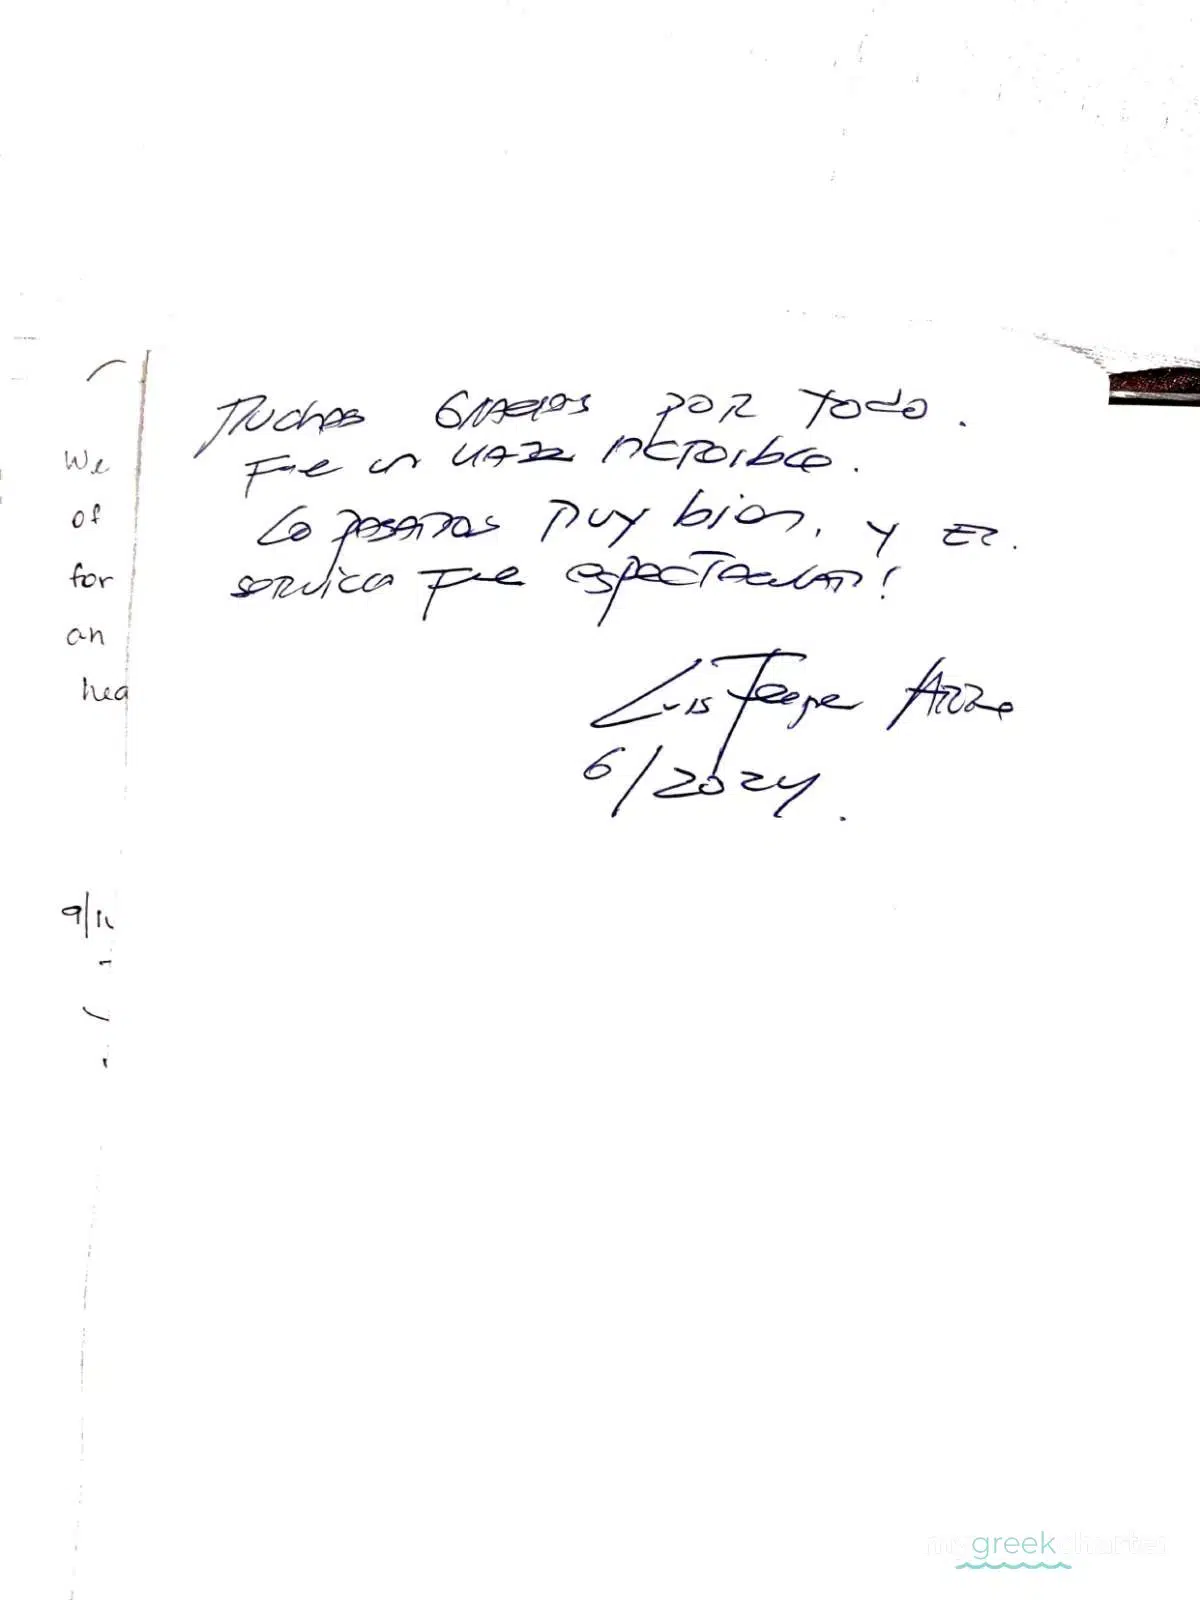 Muchas GRACIAS POR TODO.
Fue un VIAJE INCREIBLE.
Lo pasamos muy bien, y EL.
servicio fue espectacular!
Luis Felipe
6/2024.
We
of
for
an
hea
9/1
mygreekcharter